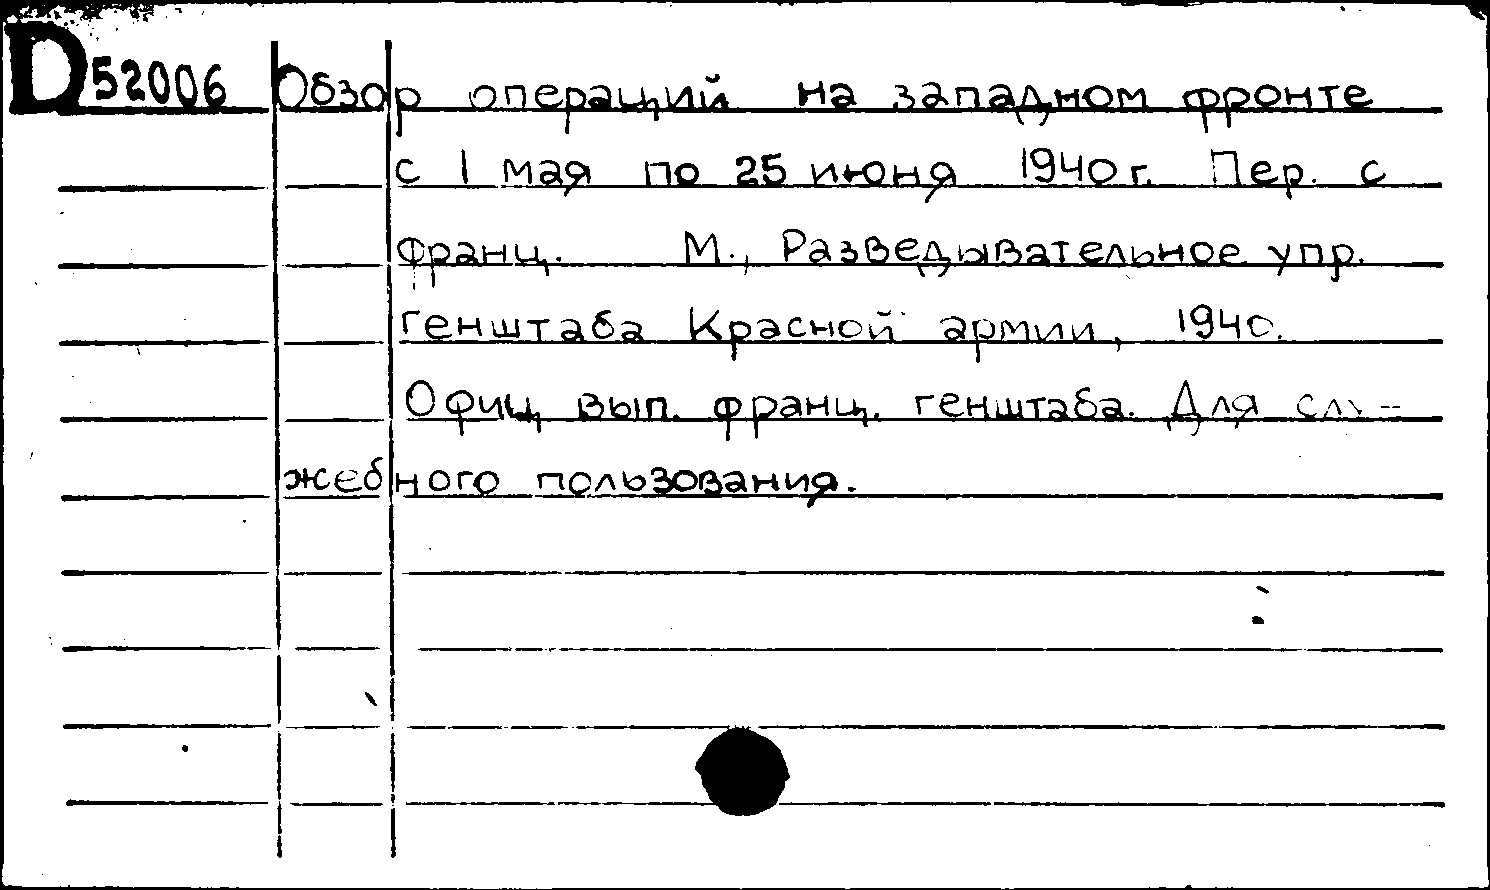 D52006 Обзор операций на западном фронте
с 1 мая по 25 июня 1940 г. Пер. с
франц. М., Разведывательное упр.
генштаба Красной армии, 1940.
Офиц. вып. франц. генштаба. Для слу-
жебного пользования.